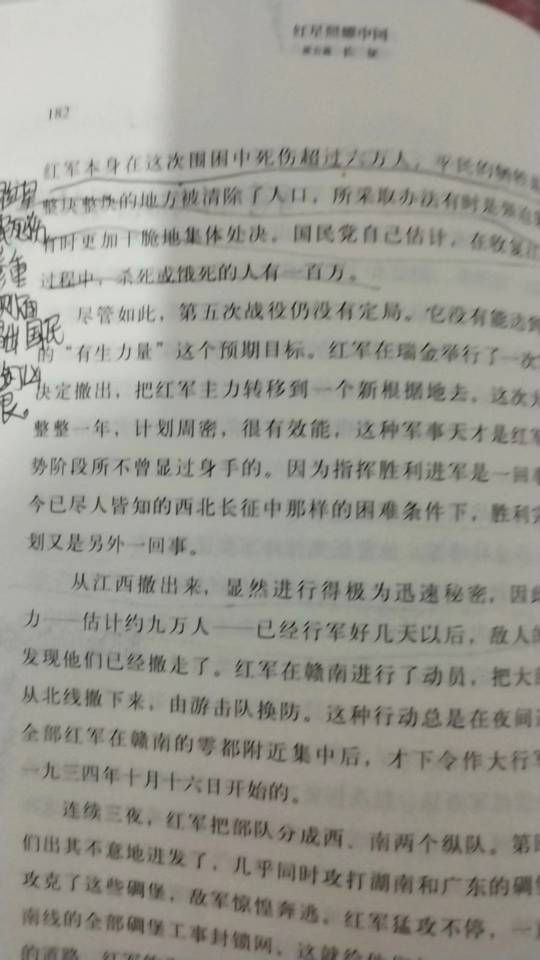 红星照耀中国
第五篇 长征
182
红军本身在这次围困中死伤超过六万人，平民的牺牲
整块整块的地方被清除了人口，所采取办法有时是强迫
有时更加干脆地集体处决。国民党自己估计，在收复江
过程中，杀死或饿死的人有一百万。
尽管如此，第五次战役仍没有定局。它没有能达到
的“有生力量”这个预期目标。红军在瑞金举行了一次
决定撤出，把红军主力转移到一个新根据地去。这次
整整一年，计划周密，很有效能，这种军事天才是红军
势阶段所不曾显过身手的。因为指挥胜利进军是一回事
今已尽人皆知的西北长征中那样的困难条件下，胜利完
划又是另外一回事。
从江西撤出来，显然进行得极为迅速秘密，因此
力——估计约九万人——已经行军好几天以后，敌人的
发现他们已经撤走了。红军在赣南进行了动员，把大
从北线撤下来，由游击队换防。这种行动总是在夜间进
全部红军在赣南的雩都附近集中后，才下令作大行军
一九三四年十月十六日开始的。
连续三夜，红军把部队分成西、南两个纵队。第
们出其不意地进发了，几乎同时攻打湖南和广东的碉
攻克了这些碉堡，敌军惊惶奔逃。红军猛攻不停，一
南线的全部碉堡工事封锁网，这就给他们
的道路，红军
国民